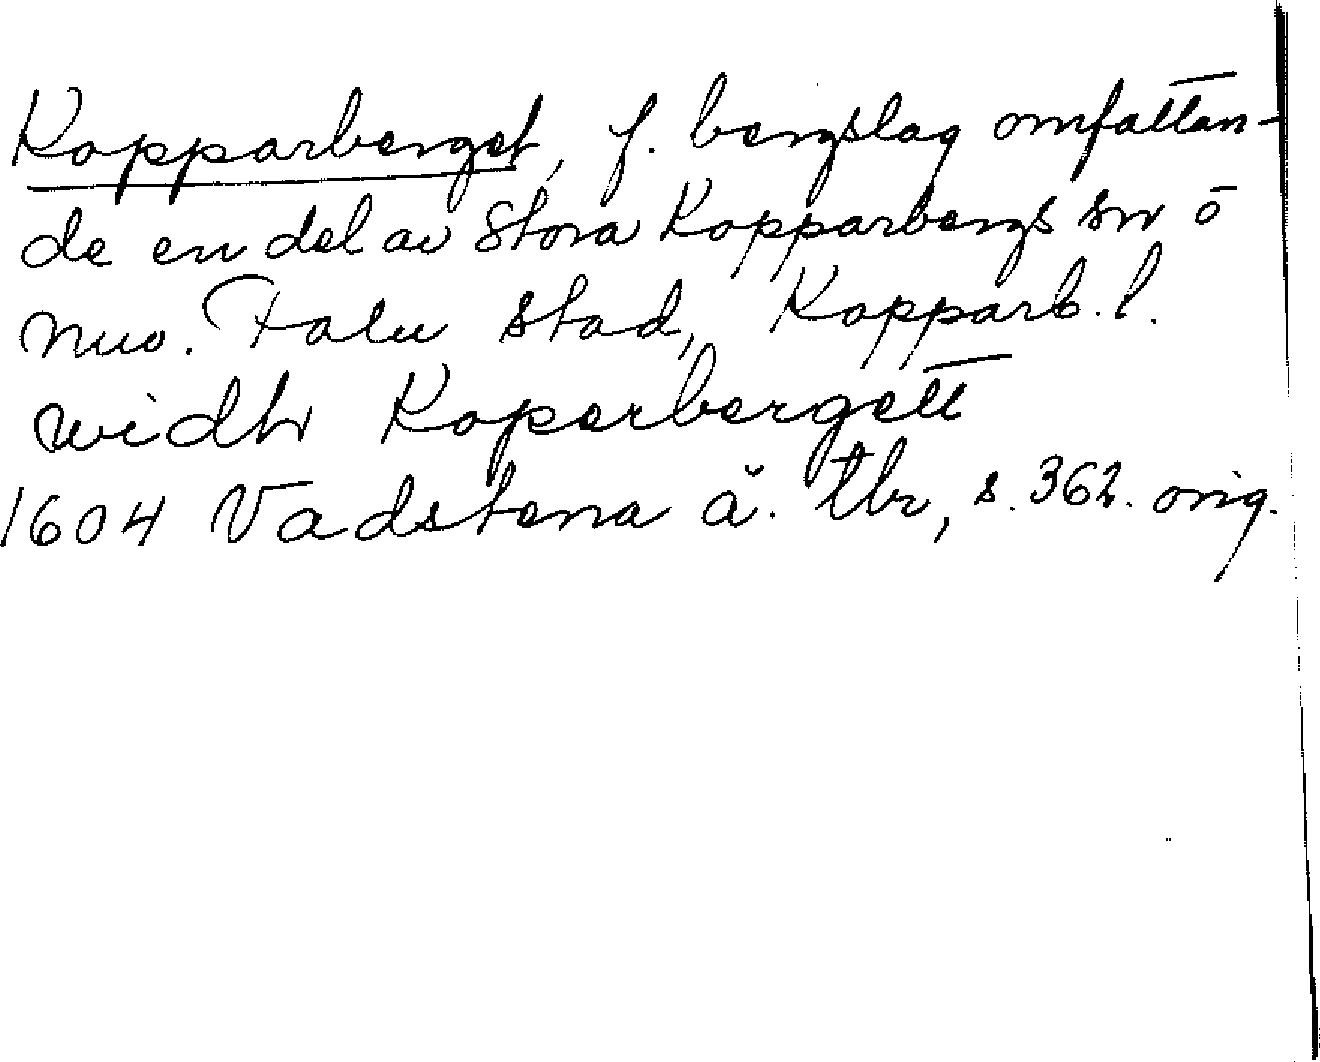 Kopparberget, f. bergslag omfattan-
de en del av Stora Kopparbergs sn o
nuv. Falu stad, Kopparb. l.
widh Koperbergett
1604 Vadstena ä. tbr, s. 362. orig.